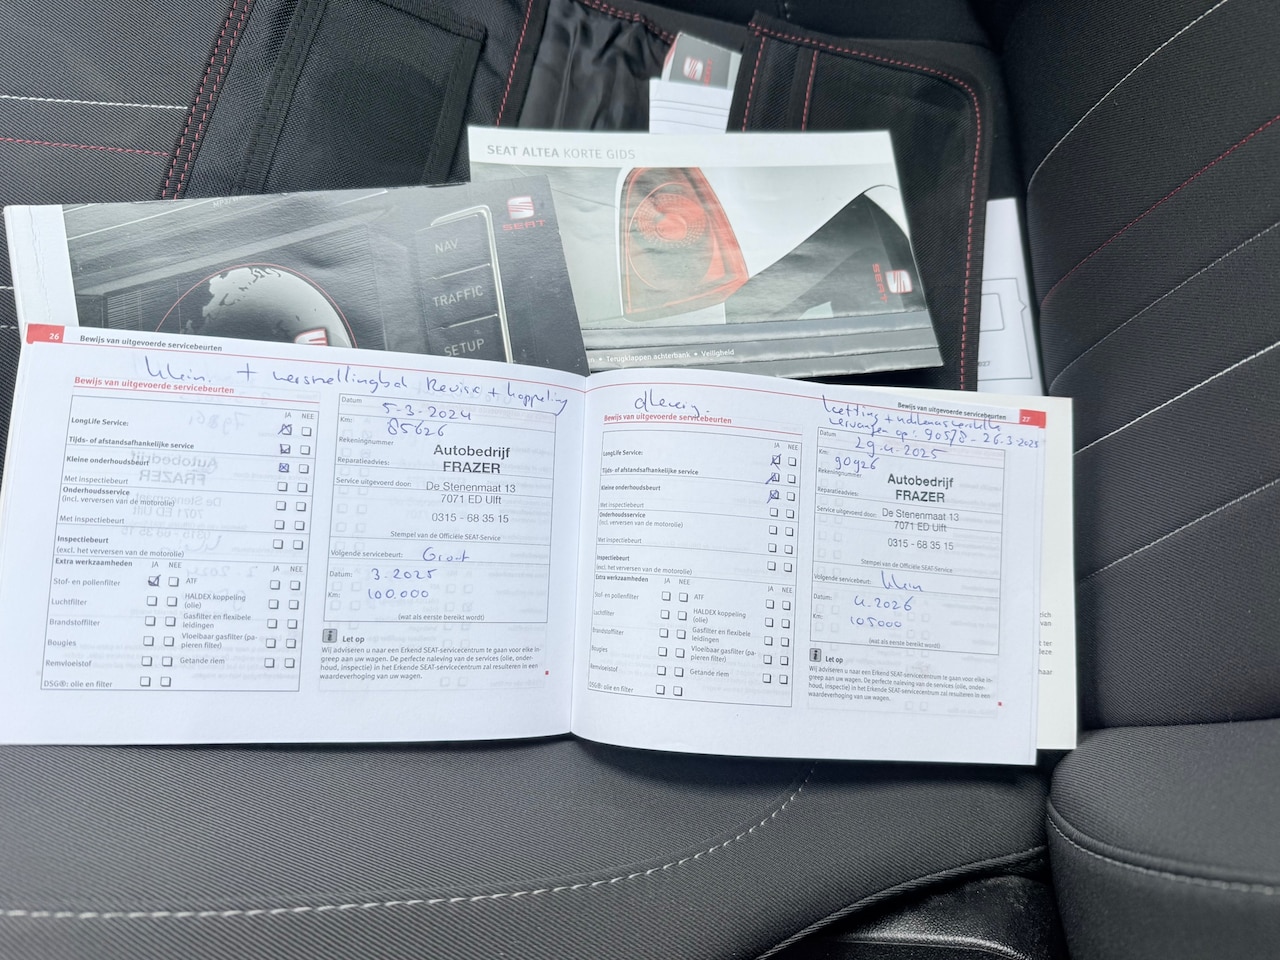 SEAT ALTEA KORTE GIDS
SEAT
NAV
TRAFFIC
SETUP
SEAT
• Terugklappen achterbank • Veiligheid
26 Bewijs van uitgevoerde servicebeurten
klein. + versnellingbak Revisie + koppeling
Bewijs van uitgevoerde servicebeurten
JA NEE
LongLife Service:
Tijds- of afstandsafhankelijke service
Kleine onderhoudsbeurt
Met inspectiebeurt
Onderhoudsservice
(incl. verversen van de motorolie)
Met inspectiebeurt
Inspectiebeurt
(excl. het verversen van de motorolie)
Extra werkzaamheden JA NEE JA NEE
Stof- en pollenfilter ATF
Luchtfilter HALDEX koppeling (olie)
Brandstoffilter Gasfilter en flexibele leidingen
Bougies Vloeibaar gasfilter (papieren filter)
Remvloeistof Getande riem
DSG®: olie en filter
Datum 5-3-2024
Km: 85626
Rekeningnummer
Reparatieadvies:
Service uitgevoerd door:
Autobedrijf
FRAZER
De Stenenmaat 13
7071 ED Ulft
0315 - 68 35 15
Stempel van de Officiële SEAT-Service
Volgende servicebeurt: Groot
Datum: 3.2025
Km: 100.000
(wat als eerste bereikt wordt)
Let op
Wij adviseren u naar een Erkend SEAT-servicecentrum te gaan voor elke in-
greep aan uw wagen. De perfecte naleving van de services (olie, onder-
houd, inspectie) in het Erkende SEAT-servicecentrum zal resulteren in een
waardeverhoging van uw wagen.
Bewijs van uitgevoerde servicebeurten 27
Bewijs van uitgevoerde servicebeurten
JA NEE
LongLife Service:
Tijds- of afstandsafhankelijke service
Kleine onderhoudsbeurt
Met inspectiebeurt
Onderhoudsservice
(incl. verversen van de motorolie)
Met inspectiebeurt
Inspectiebeurt
(excl. het verversen van de motorolie)
Extra werkzaamheden JA NEE JA NEE
Stof- en pollenfilter ATF
Luchtfilter HALDEX koppeling (olie)
Brandstoffilter Gasfilter en flexibele leidingen
Bougies Vloeibaar gasfilter (papieren filter)
Remvloeistof Getande riem
DSG®: olie en filter
ketting +
vervangen op: 90578 - 26.3.2025
Datum 29.4.2025
Km: 90926
Rekeningnummer
Reparatieadvies:
Service uitgevoerd door:
Autobedrijf
FRAZER
De Stenenmaat 13
7071 ED Ulft
0315 - 68 35 15
Stempel van de Officiële SEAT-Service
Volgende servicebeurt: klein
Datum: 4.2026
Km: 105000
(wat als eerste bereikt wordt)
Let op
Wij adviseren u naar een Erkend SEAT-servicecentrum te gaan voor elke in-
greep aan uw wagen. De perfecte naleving van de services (olie, onder-
houd, inspectie) in het Erkende SEAT-servicecentrum zal resulteren in een
waardeverhoging van uw wagen.